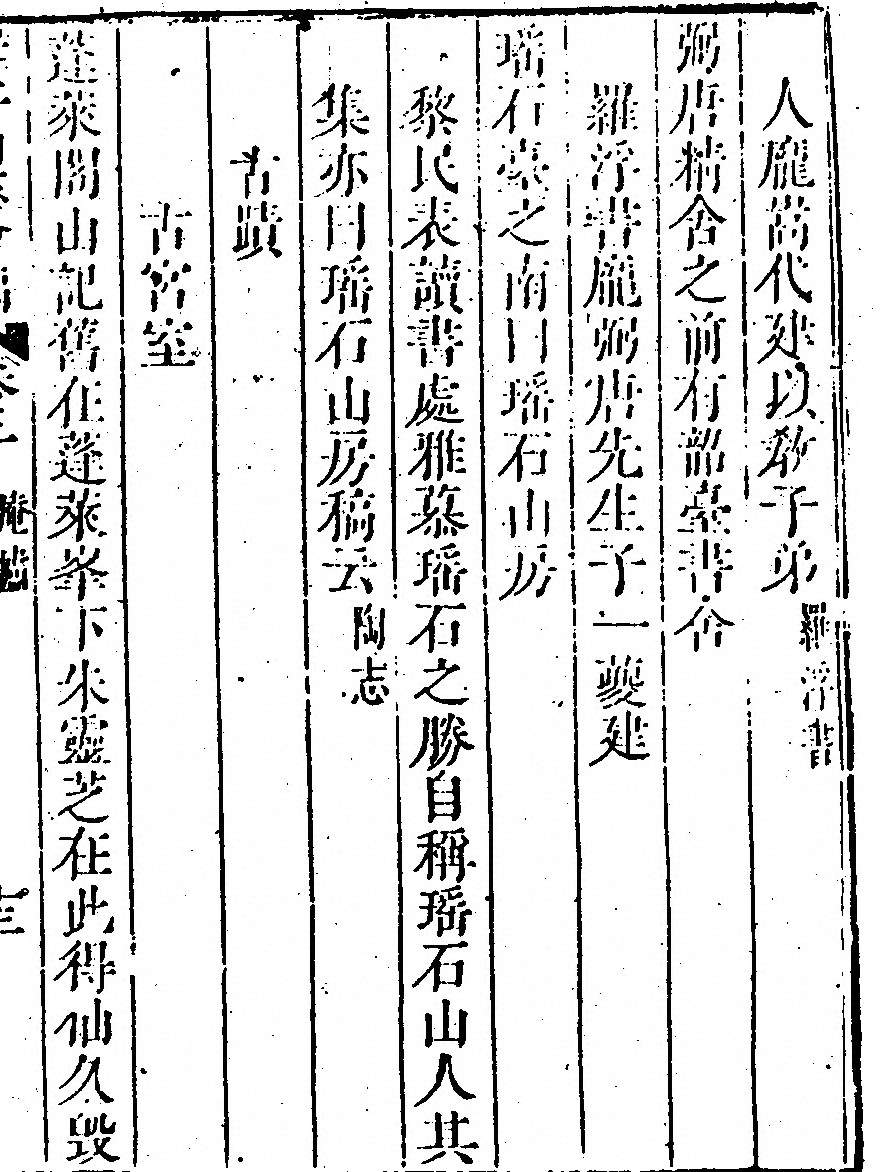 人龐嵩代建以敎子弟羅浮書
弼唐精舍之前有韶臺書舍
羅浮書龐弼唐先生子一夔建
瑶石臺之南曰瑶石山房
黎民表讀書處雅慕瑶石之勝自稱瑶石山人其
集亦曰瑶石山房稿云陶志
古蹟
古宮室
蓬萊閣山記舊在蓬萊峯下朱靈芝在此得仙久毁